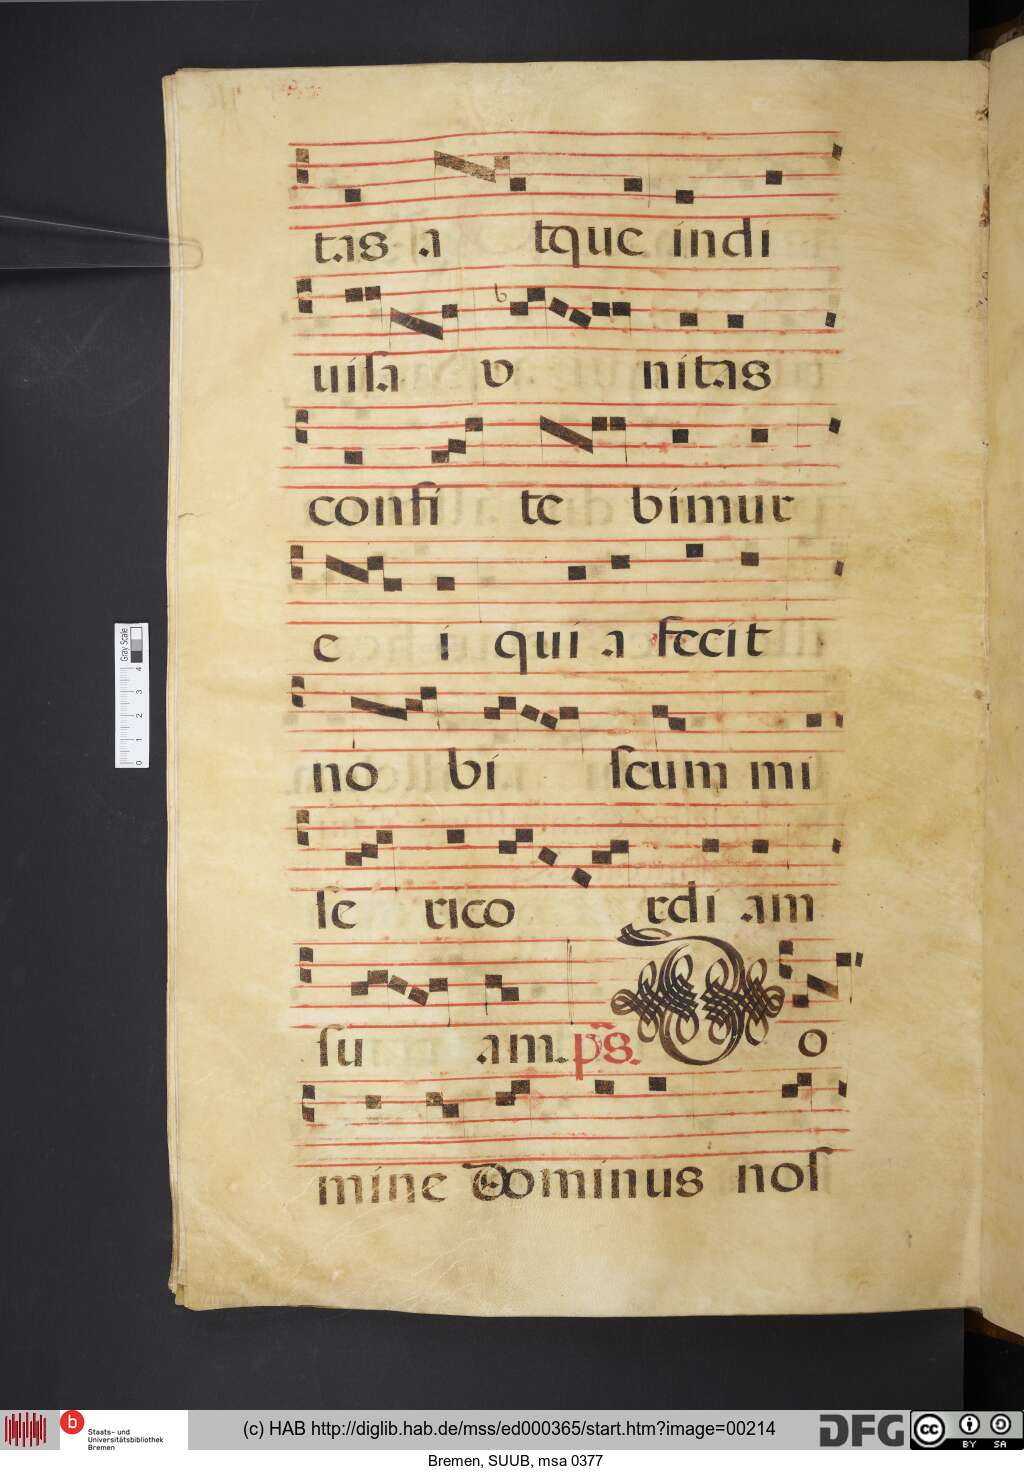 tas a tque indi
uisa v nitas
confi te bimur
e i qui a fecit
no bi scum mi
se rico rdi am
su am. ps. D o
mine dominus nos
Gray Scale
0 1 2 3 4
b Staats- und
Universitätsbibliothek
Bremen
(c) HAB http://diglib.hab.de/mss/ed000365/start.htm?image=00214
DFG
cc BY SA
Bremen, SUUB, msa 0377